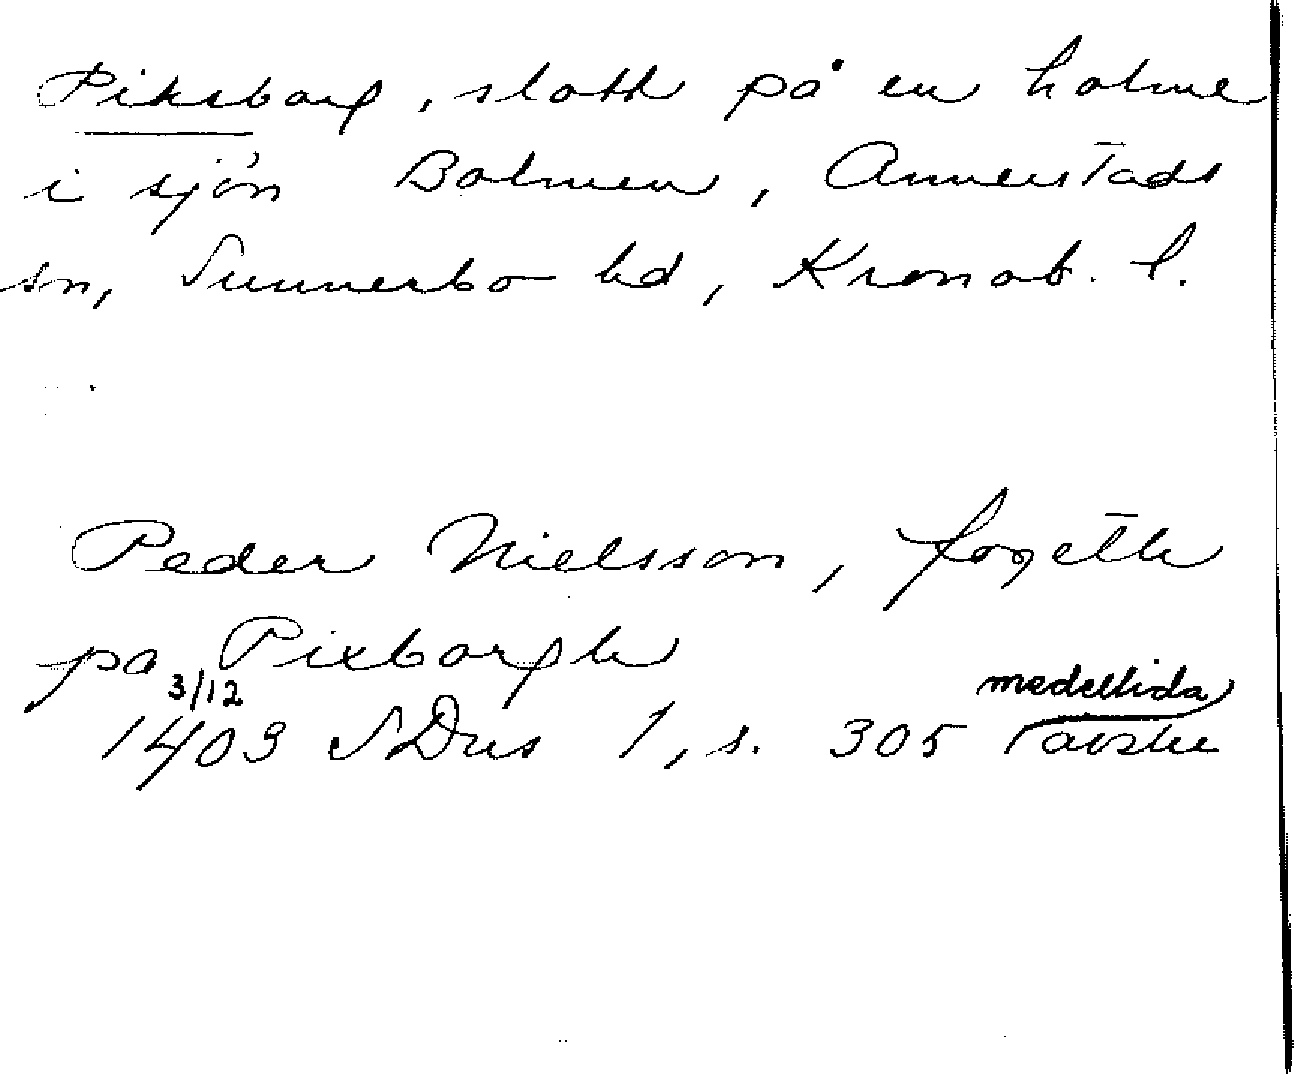 Piksborg, slott på en holme
i sjön Bolmen, Annerstads
sn, Sunnerbo hd, Kronob. l.
Peder Nielsson, foghett
pa Pixborgh
3/12 medeltida
1403 SDns 1, s. 305 avskr